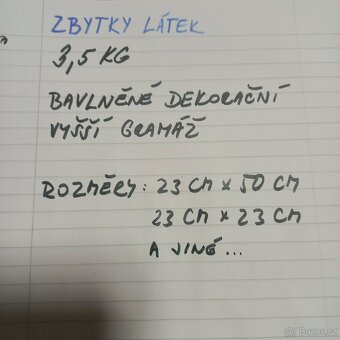 ZBYTKY LÁTEK
3,5 KG
BAVLNĚNÉ DEKORAČNÍ
VYŠŠÍ GRAMÁŽ
ROZMĚRY: 23 CM x 50 CM
23 CM x 23 CM
A JINÉ...
Bazos.cz